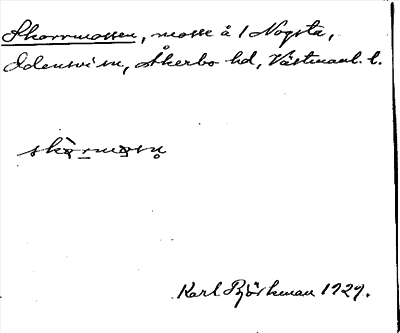 Skorrmossen, mosse å 1 Nogsta,
Odensvi sn, Åkerbo hd, Västmanl. l.
skòrmosn̥
Karl Björkman 1929.